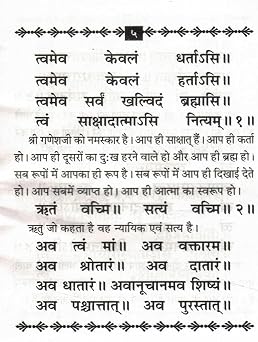 ५
त्वमेव केवलं धर्ताऽसि॥
त्वमेव केवलं हर्ताऽसि॥
त्वमेव सर्वं खल्विदं ब्रह्मासि॥
त्वं साक्षादात्माऽसि नित्यम्॥१॥
श्री गणेशजी को नमस्कार है। आप ही साक्षात् हैं। आप ही कर्ता
हो। आप ही दूसरों का दुःख हरने वाले हो और आप ही ब्रह्म हो।
सब रूपों में आपका ही रूप है। सब रूपों में आप ही दिखाई देते
हो। आप सबमें व्याप्त हो। आप ही आत्मा का स्वरूप हो।
ऋतं वच्मि॥ सत्यं वच्मि॥२॥
ऋतु जो कहता है वह न्यायिक एवं सत्य है।
अव त्वं मां॥ अव वक्तारम॥
अव श्रोतारं॥ अव दातारं॥
अव धातारं॥ अवानूचानमव शिष्यं॥
अव पश्चात्तात्॥ अव पुरस्तात्॥